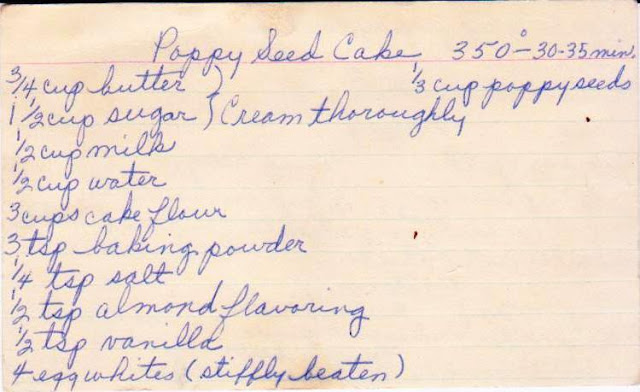 Poppy Seed Cake 350°-30-35 min.
3/4 cup butter } 1/3 cup poppy seeds
1 1/2 cup sugar } Cream thoroughly
1/2 cup milk
1/2 cup water
3 cups cake flour
3 tsp baking powder
1/4 tsp salt
1/2 tsp almond flavoring
1/2 tsp vanilla
4 egg whites (stiffly beaten)